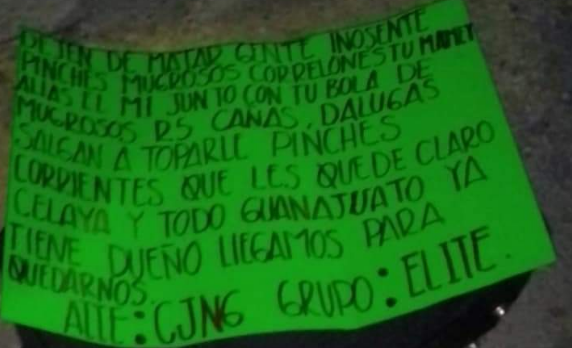 DEJEN DE MATAR GENTE INOSENTE
PINCHES MUGROSOS CORRELONES TU MAMET
ALIAS EL MI JUNTO CON TU BOLA DE
MUGROSOS R5 CAÑAS, DALUGAS
SALGAN A TOPARLE PINCHES
CORRIENTES QUE LES QUEDE CLARO
CELAYA Y TODO GUANAJUATO YA
TIENE DUEÑO LLEGAMOS PARA
QUEDARNOS.
ATTE: CJNG GRUPO: ELITE.